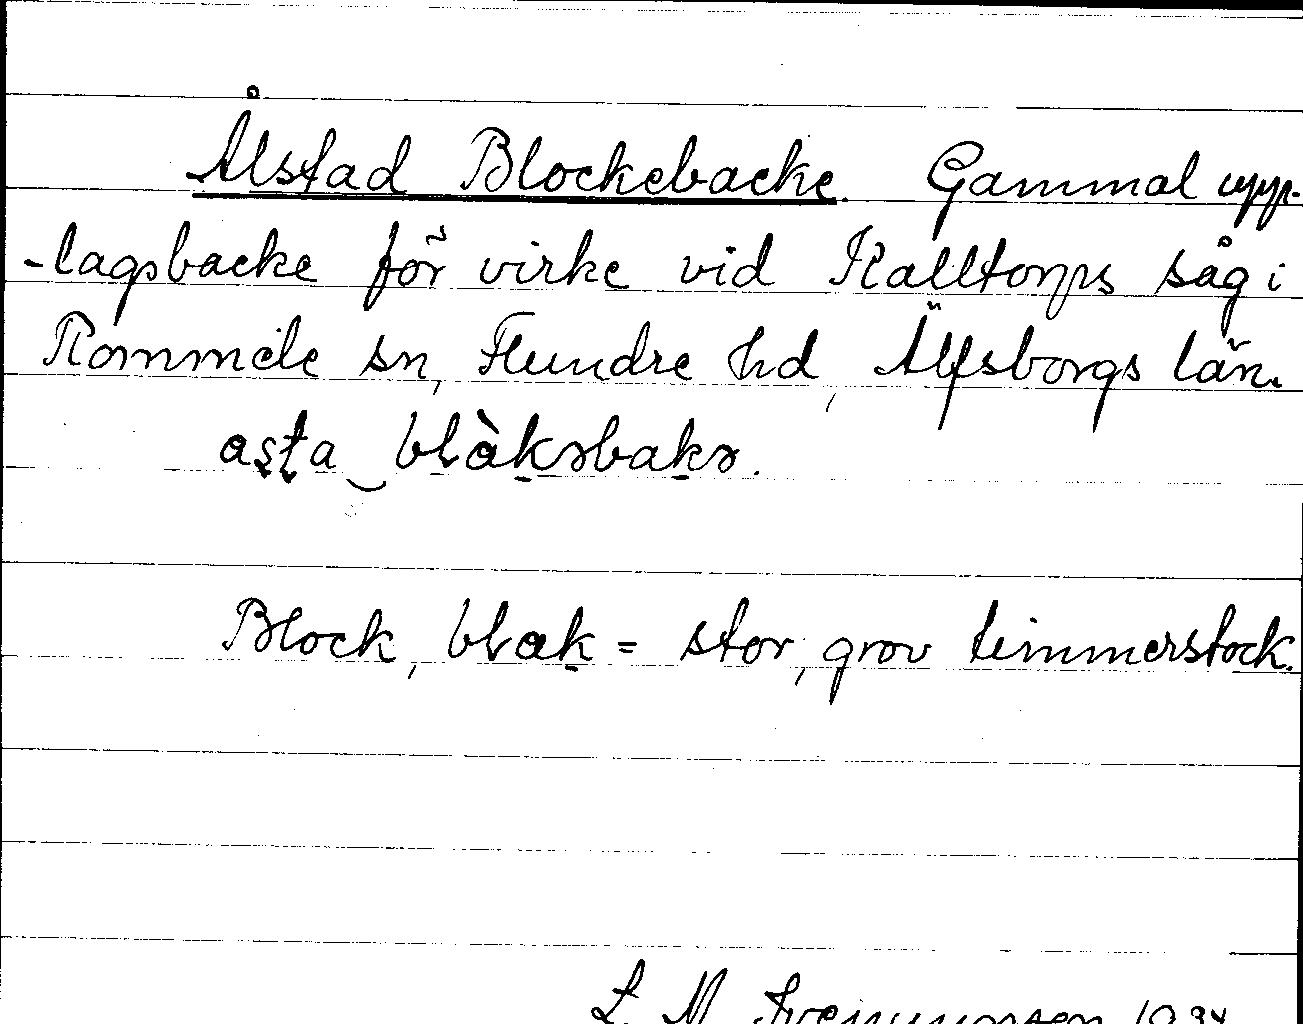 Ålstad Blockebacke. Gammal upp-
-lagsbacke för virke vid Kalltorps såg i
Rommele sn, Flundre hd, Älfsborgs län.
aʂʈa‿blàkəbakə.
Block, blak = stor, grov timmerstock.
L. M.